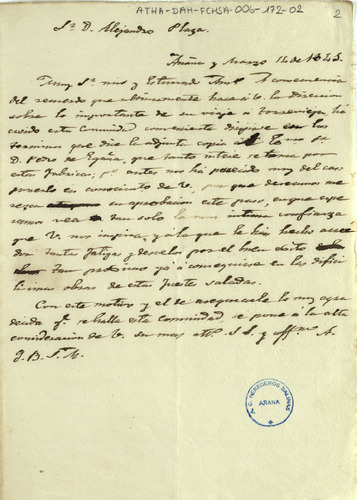 ATHA-DAH-FCHSA-006-172-02
2
Sr. D. Alejandro Plaza.
Añana y Marzo 14 de 1845.
Muy Sr. mio y Estimado A consecuencia
del recuerdo que ultimamente hace á V. la Direccion
sobre lo importante de su viaje á Torrevieja, ha
creido esta Comunidad conveniente dirijirse con los
terminos que dice la adjunta copia
D. Pedro de Egaña, que tanto interes se toma por
estas fabricas; pº antes nos ha parecido muy del caso
ponerlo en conocimto de V. por que deseamos me
rezca su aprobacion este paso, en que espe
ramos vea tan solo la mas intima confianza
que V. nos inspira, y á la que le han hecho acree
dor tantas fatigas y desvelos por el buen exito
tan procsimo ya á conseguirse en las dificí
limas obras de estas fuentes saladas.
Con este motivo y el de asegurarle lo muy agra
decida qe. se halla esta comunidad se pone á la alta
consideracion de V. su mas atto. S. S. y
Q. B. S. M.
HEREDEROS SALINAS
AÑANA